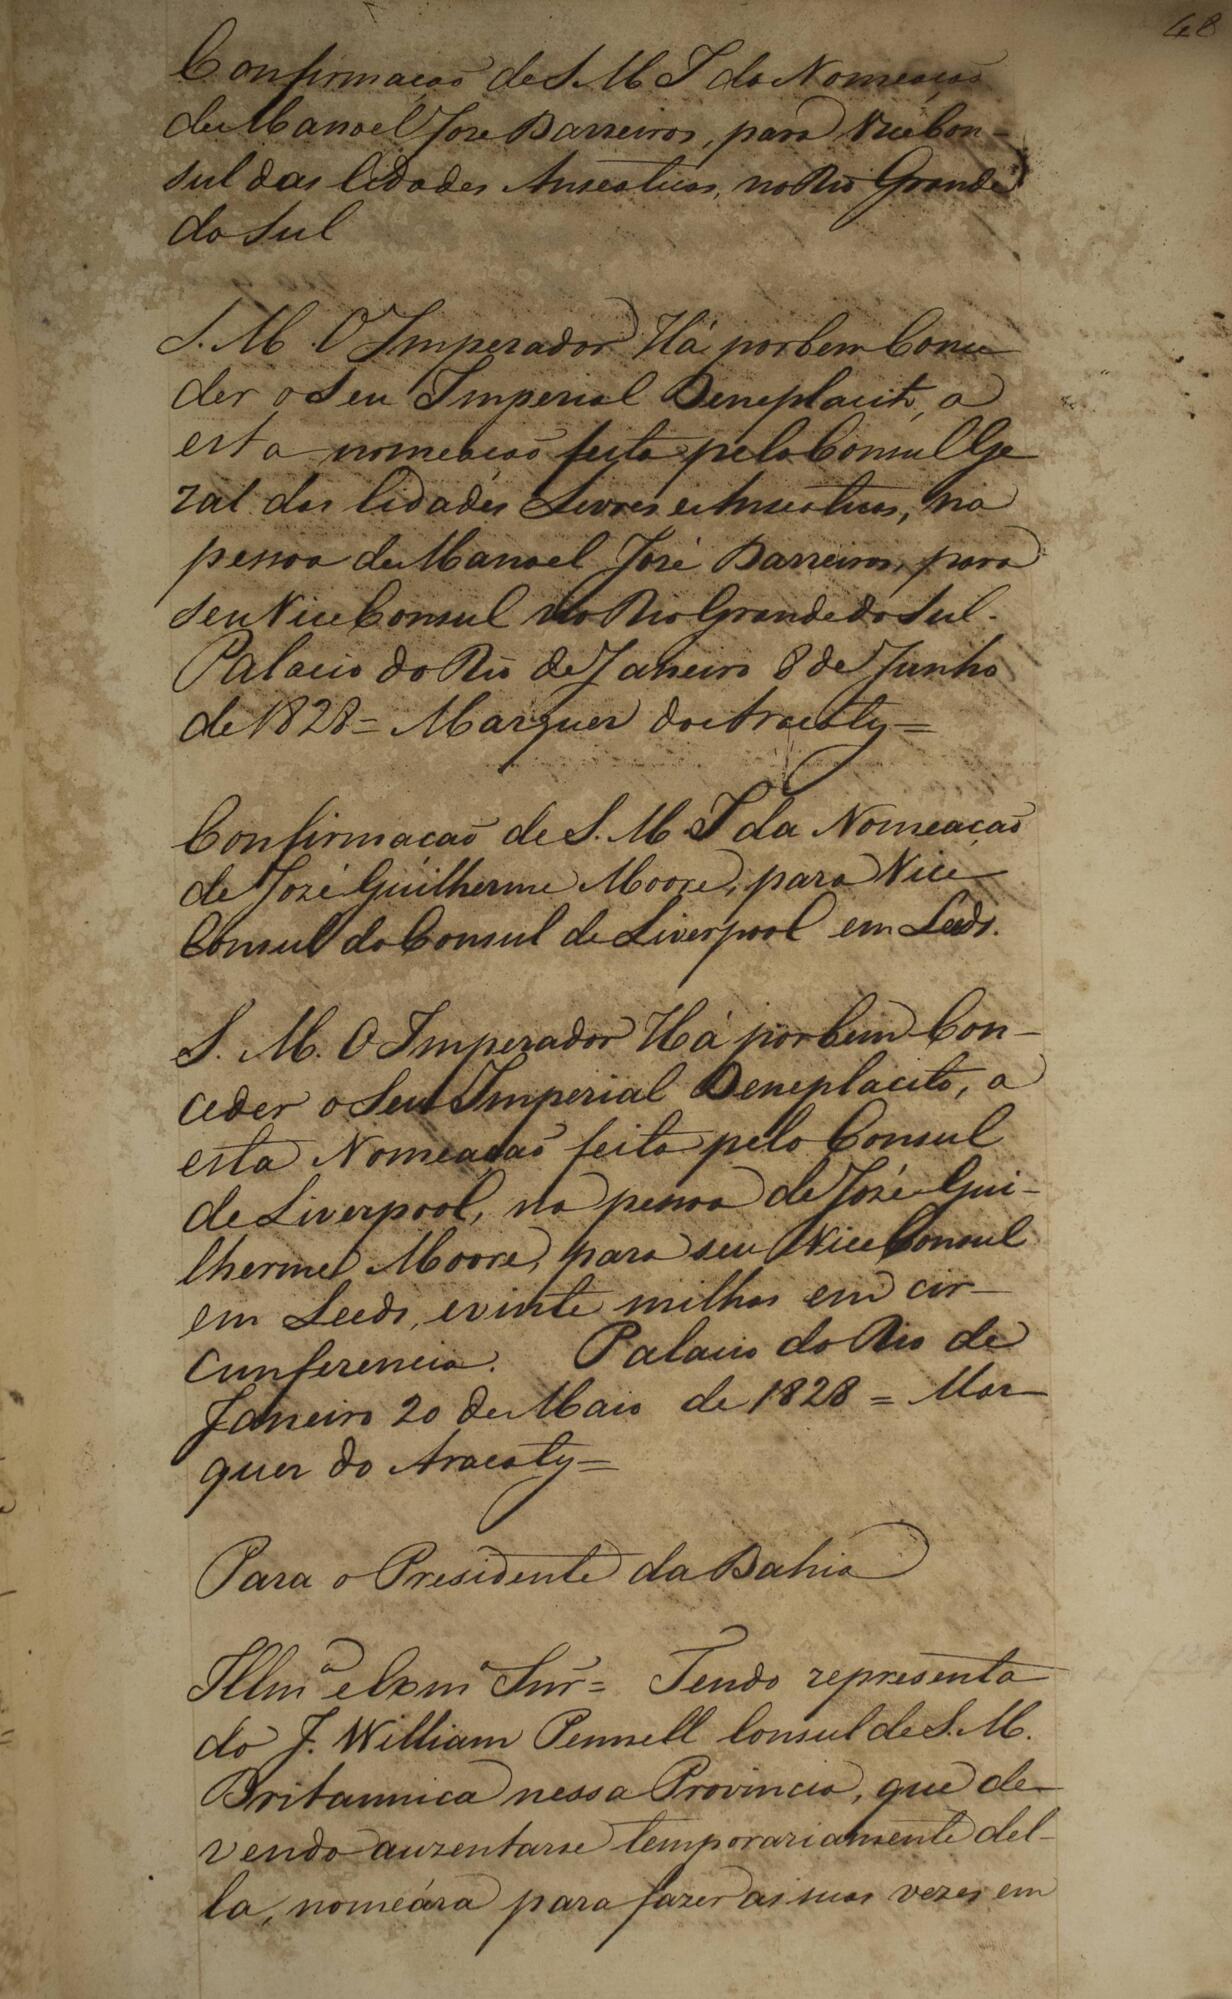 48
Confirmação de S. M. I da Nomeação
de Manoel José Barreiros, para Vice Con-
sul das Cidades Anseaticas, no Rio Grande
do Sul
S. M. O Imperador Há por bem Conce
der o Seu Imperial Beneplacito, a
esta nomeação feita pelo Consul Ge
ral das Cidades Livres e Anseaticas, na
pessoa de Manoel José Barreiros, para
seu Vice Consul no Rio Grande do Sul.
Palacio do Rio de Janeiro 8 de Junho
de 1828 = Marquez do Aracaty =
Confirmação de S. M. I da Nomeação
de José Guilherme Moore, para Vice
Consul do Consul de Liverpool em Leeds.
S. M. O Imperador Há por bem Con-
ceder o Seu Imperial Beneplacito, a
esta Nomeação feita pelo Consul
de Liverpool, na pessoa de José Gui-
lherme Moore, para seu Vice Consul
em Leeds, e vinte milhas em cir-
cunferencia. Palacio do Rio de
Janeiro 20 de Maio de 1828 = Mar
quez do Aracaty =
Para o Presidente da Bahia
Illmº e Exmº Snr = Tendo representa
do J. William Pennell Consul de S. M.
Britannica nessa Provincia, que de-
vendo auzentarse temporariamente del-
la, nomeára para fazer as suas vezes em